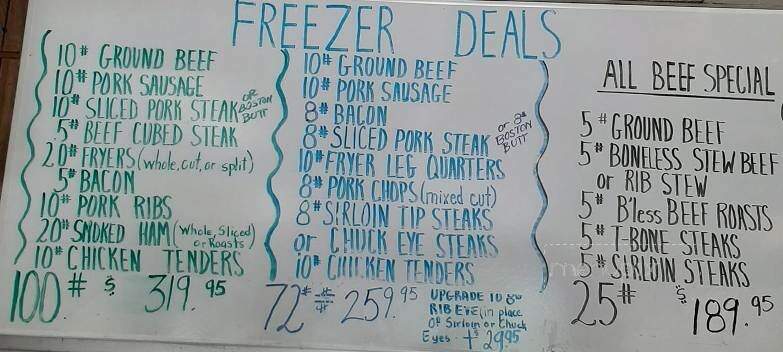 FREEZER DEALS
10# GROUND BEEF
10# PORK SAUSAGE
10# SLICED PORK STEAK OR BOSTON BUTT
5# BEEF CUBED STEAK
20# FRYERS (whole, cut, or split)
5# BACON
10# PORK RIBS
20# SMOKED HAM (Whole, Sliced or Roasts)
10# CHICKEN TENDERS
100# $ 319.95
10# GROUND BEEF
10# PORK SAUSAGE
8# BACON
8# SLICED PORK STEAK or 8# BOSTON BUTT
10# FRYER LEG QUARTERS
8# PORK CHOPS (mixed cut)
8# SIRLOIN TIP STEAKS
or CHUCK EYE STEAKS
10# CHICKEN TENDERS
72# 259.95
UPGRADE TO 8#
RIB EYE (in place
of Sirloin or Chuck
Eyes - + 29.95
ALL BEEF SPECIAL
5# GROUND BEEF
5# BONELESS STEW BEEF
or RIB STEW
5# B'less BEEF ROASTS
5# T-BONE STEAKS
5# SIRLOIN STEAKS
25# $ 189.95